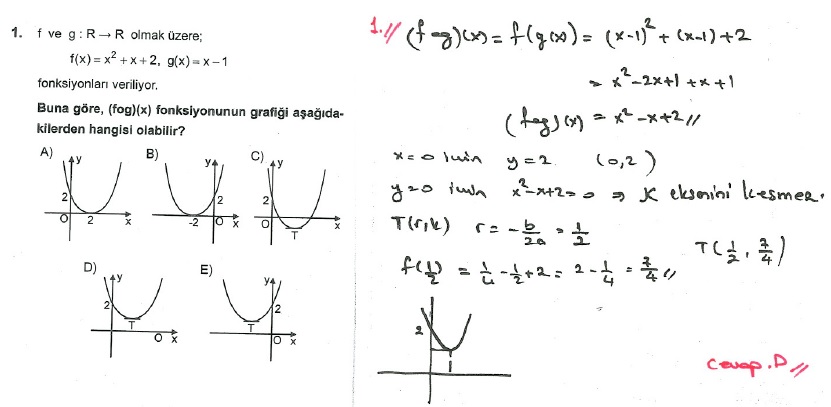 1. f ve g : R → R olmak üzere;
f(x) = x² + x + 2, g(x) = x – 1
fonksiyonları veriliyor.
Buna göre, (fog)(x) fonksiyonunun grafiği aşağıda-
kilerden hangisi olabilir?
A) y 2 O 2 x
B) y 2 -2 O x
C) y 2 O T x
D) y 2 T O x
E) y 2 T O x
1.// (fog)(x) = f(g(x)) = (x-1)² + (x-1) + 2
= x² - 2x + 1 + x + 1
(fog)(x) = x² - x + 2 //
x = 0 için y = 2 (0,2)
y = 0 için x² - x + 2 = 0 ⇒ x eksenini kesmez.
T(r,k) r = - b/2a = 1/2
T(1/2, 7/4)
f(1/2) = 1/4 - 1/2 + 2 = 2 - 1/4 = 7/4 //
2
Cevap.D //